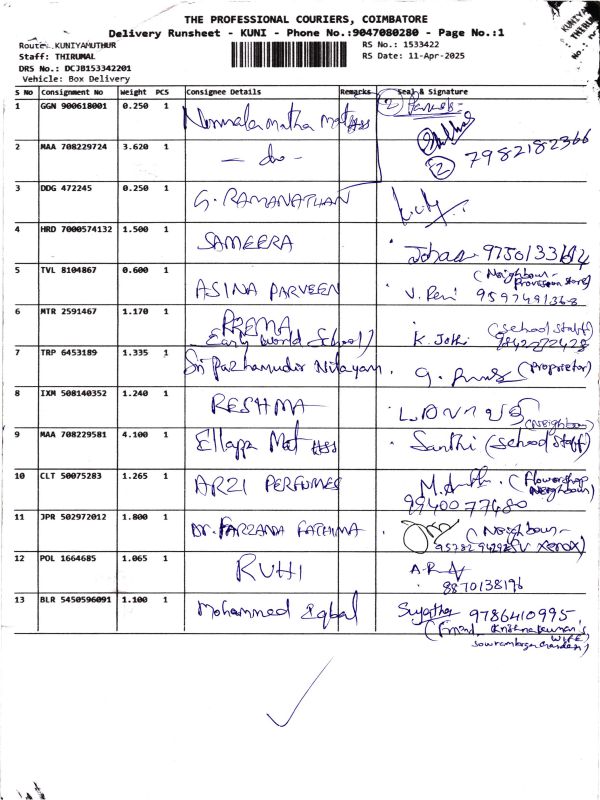 THE PROFESSIONAL COURIERS, COIMBATORE
Delivery Runsheet - KUNI - Phone No.:9047080280 - Page No.:1
Route: KUNIYAMUTHUR
RS No.: 1533422
Staff: THIRUMAL
RS Date: 11-Apr-2025
DRS No.: DCJB153342201
Vehicle: Box Delivery
S No Consignment No Weight PCS Consignee Details Remarks Seal & Signature
1 GGN 900618001 0.250 1 Nirmala Matha Mat Hss (2) Parcels
2 MAA 708229724 3.620 1 - do - (2) 7982182366
3 DDG 472245 0.250 1 G. RAMANATHAN
4 HRD 7000574132 1.500 1 SAMEERA
5 TVL 8104867 0.600 1 ASINA PARVEEN (Neighbour - Provision store)
V. Peri 9597491368
6 MTR 2591467 1.170 1 PREMA (School Staff)
Early World School) K. Jothi 9842272428
7 TRP 6453189 1.335 1 Sri Pazhamudir Nilayam (Proprietor)
8 IXM 508140352 1.240 1 RESHMA (Neighbour)
9 MAA 708229581 4.100 1 Ellappa Mat Hss Santhi (School Staff)
10 CLT 50075283 1.265 1 ARZI PERFUMES (Flowershop Neighbour)
9940077480
11 JPR 502972012 1.800 1 Dr. FARZANA FATHIMA (Neighbour -
XEROX)
12 POL 1664685 1.065 1 RUHI
8870138196
13 BLR 5450596091 1.100 1 Mohammed Iqbal 9786410995
WIFE,